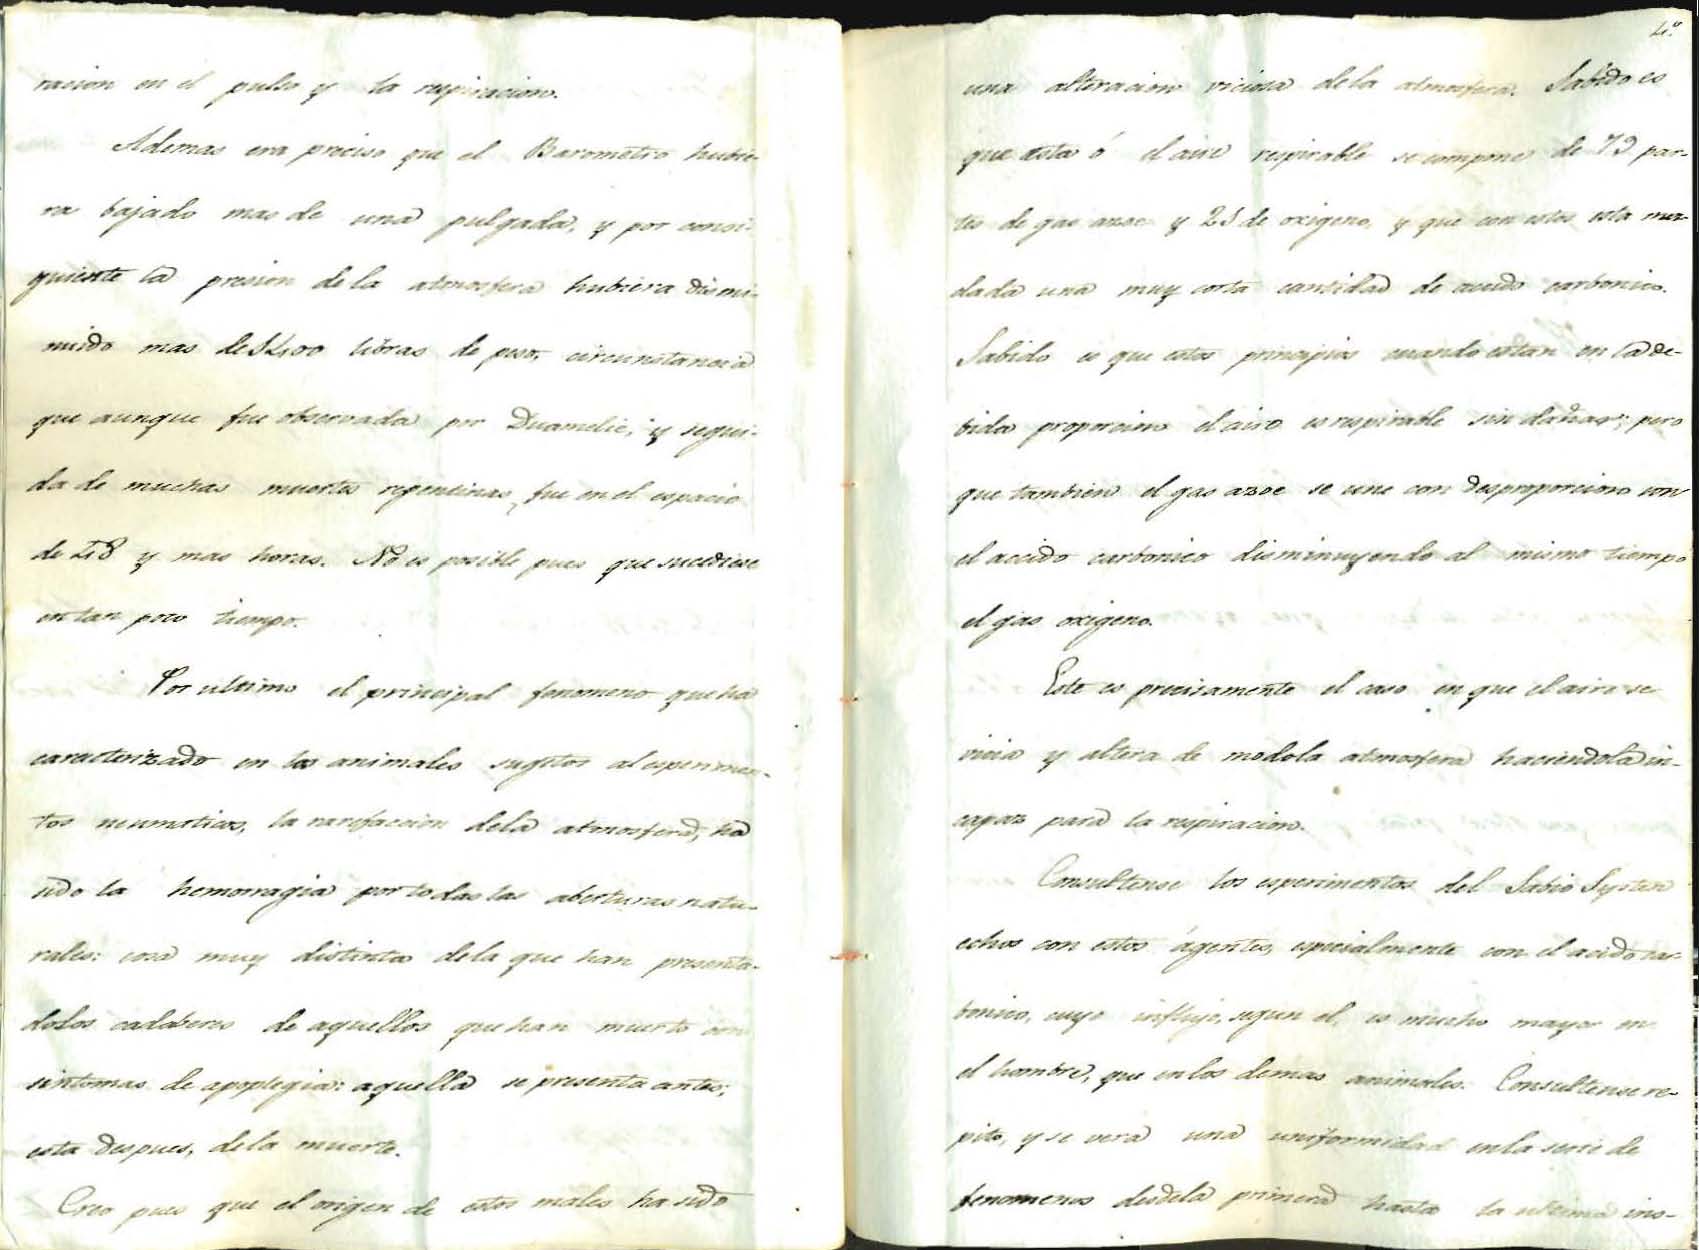 racion en el pulso y la respiracion.
Ademas era preciso que el Barometro hubie-
ra bajado mas de una pulgada, y por consi-
guiente la presion de la atmosfera hubiera dismi-
nuido mas de 1400 libras de peso, circunstancia
que aunque fue observada por Duamelic, y segui-
da de muchas muertes repentinas, fue en el espacio
de 48 y mas horas. No es posible pues que sucediese
en tan poco tiempo.
Por ultimo el principal fenomeno que ha
caracterizado en los animales sugetos al esperimen-
tos neumaticos, la rarefaccion de la atmosfera, ha
sido la hemorragia por todas las aberturas natu-
rales: cosa muy distinta de la que han presenta-
do los cadaberes de aquellos que han muerto con
sintomas de apoplegia: aquella se presenta antes;
esta despues, de la muerte.
Creo pues que el origen de estos males ha sido
4.º
una alteracion viciosa de la atmosfera. Sabido es
que esta ó el aire respirable se compone de 79 par-
tes de gas azoe y 21 de oxigeno, y que con estos esta mez-
clada una muy corta cantidad de acido carbonico.
Sabido es que estos principios cuando estan en la de-
bida proporcion el aire es respirable sin dañar; pero
que tambien el gas azoe se une con desproporcion con
el accido carbonico disminuyendo al mismo tiempo
el gas oxigeno.
Este es precisamente el caso en que el aire se
vicia y altera de modo la atmosfera haciendola in-
capaz para la respiracion.
Consultense los esperimentos del Sabio Systen
echos con estos ágentes, especialmente con el acido car-
bonico, cuyo influjo, segun el, es mucho mayor en
el hombre, que en los demas animales. Consultense re-
pito, y se vera una uniformidad en la serie de
fenomenos desde la primera hasta la ultima ins-